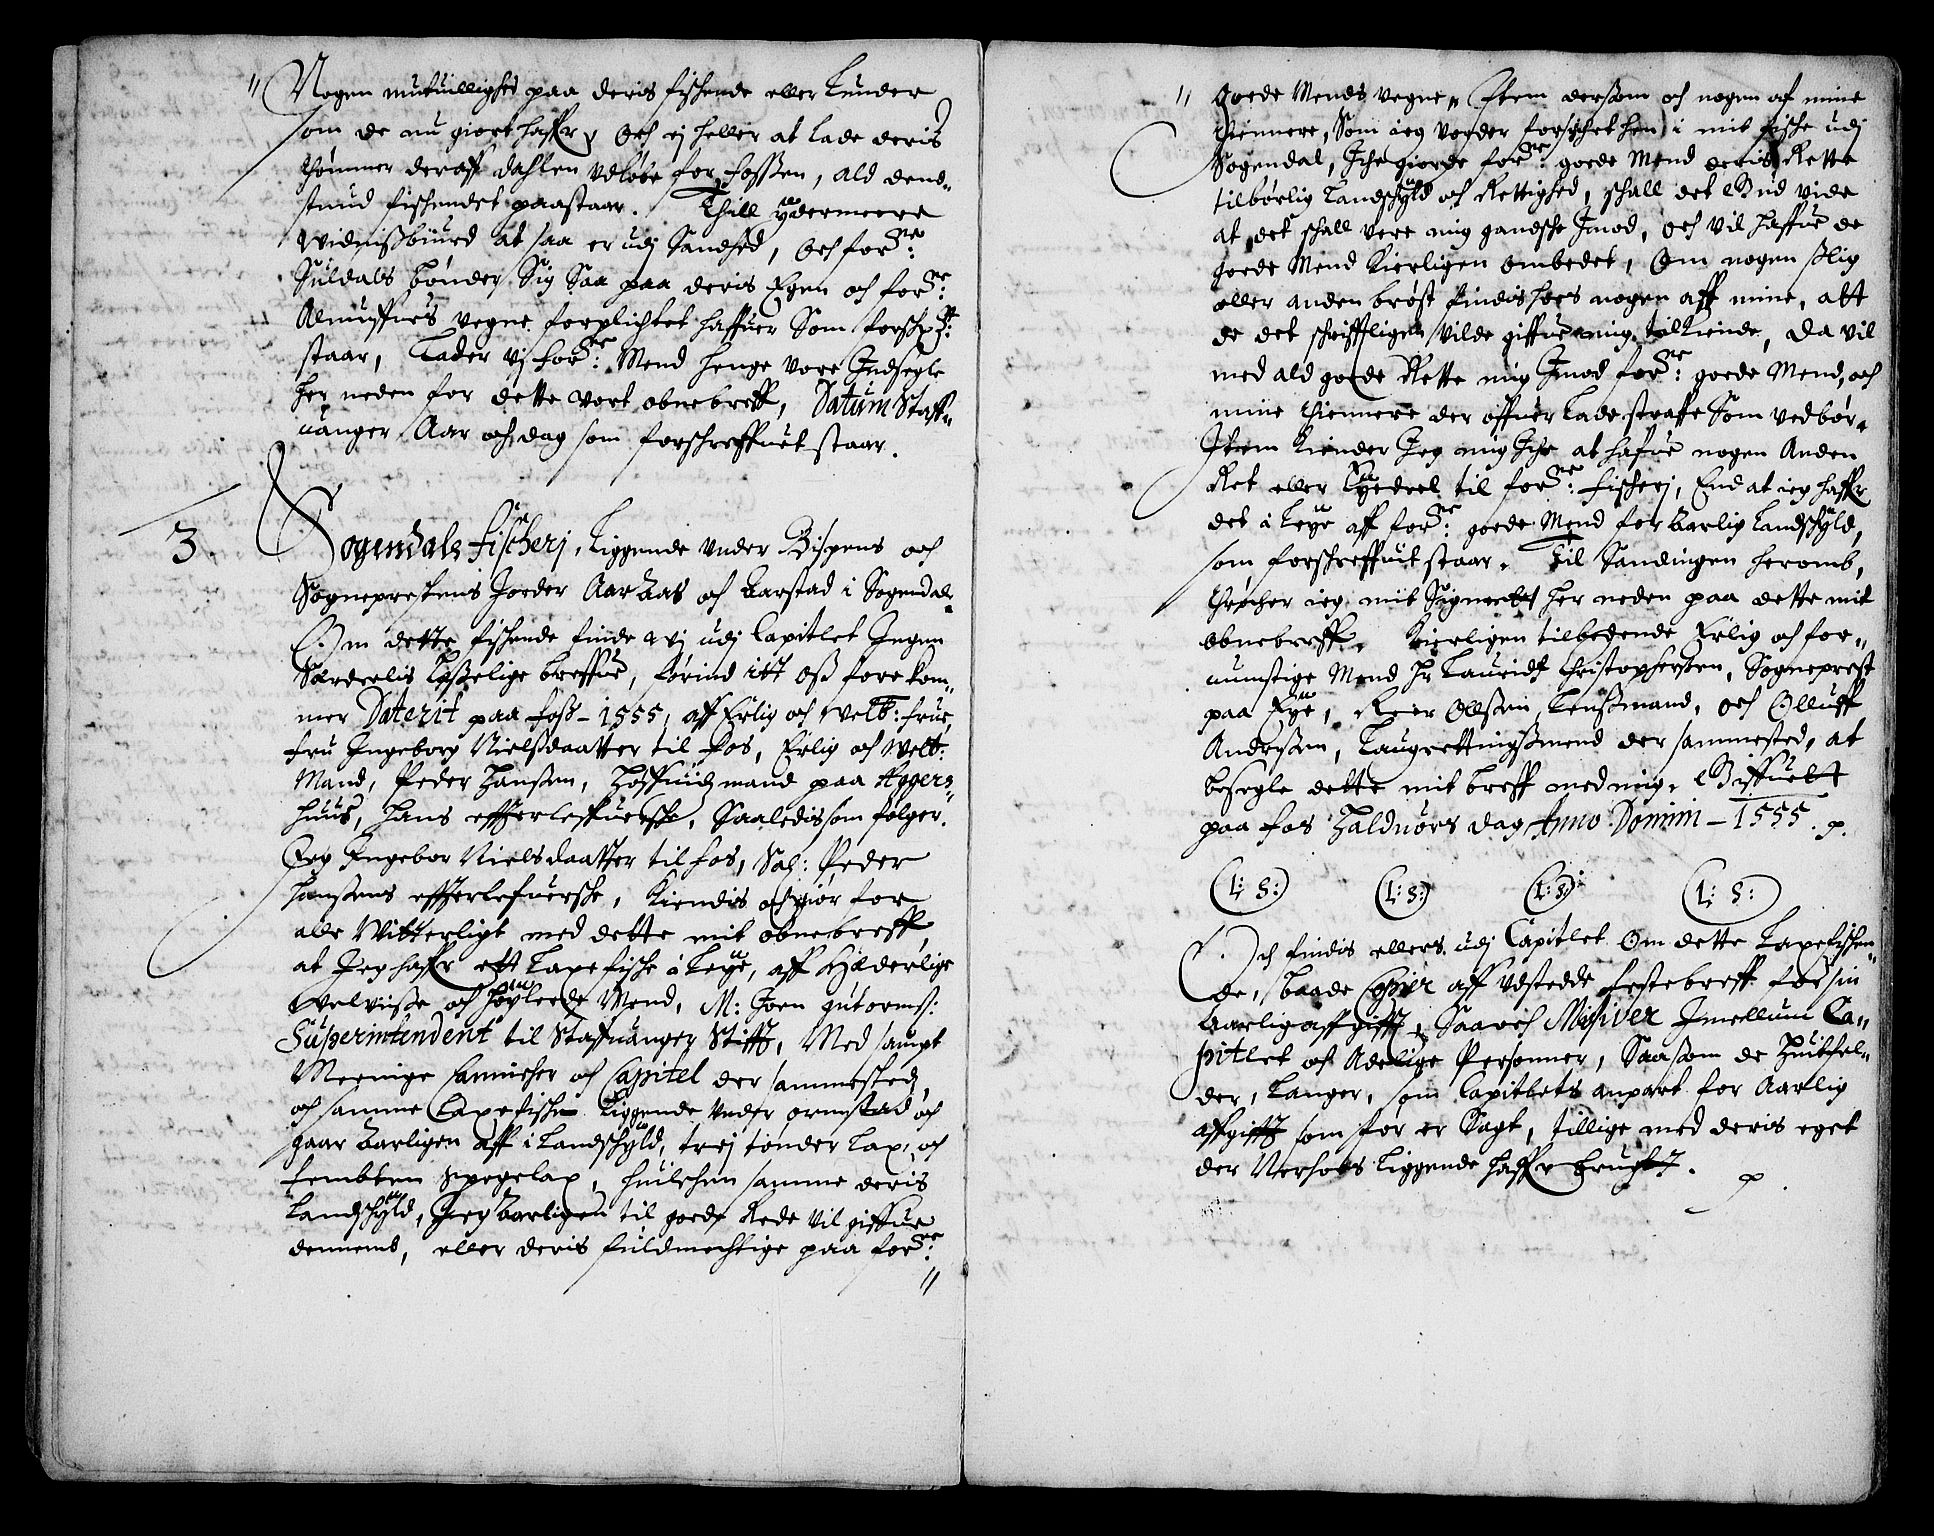 Nogen mutuillighed paa deris fischende eller Lunder
som de nu giort haffr, Och ej heller at lade deris
thömmer deraff dahlen vdlöbe for fossen, ald dend-
stund fischendet paastaar. Thill ÿdermeere
Widnißbiurd at saa er udj Sandhed, Och forne:
Suldals bönder Sig Saa paa deris Egen och forne:
Almuffues vegne forplichtet haffuer Som forschr:
staar, Lader vj forne: Mend henge vore Indsegle
her neden for dette vort obnebreff, Datum Staff-
uanger Aar och dag som forschreffuet staar.
3
Sogendals fischerj, Liggende under Bispens och
Sogneprestens Jorder Aarbas och Barstad i Sogendal.
Om dette fischende finde wj udj Capitlet Ingen
Serdeelis Lösselige breffue, förind itt oß forekom-
mer Daterit paa foss - 1555, aff Erlig och velb: frue,
fru Ingeborg Nielßdaatter til fos, Erlig och velb:
Mand, Peder Hanßen, Höffuidzmand paa Aggers-
huus, hans effterleffuersche, Saaledis som fölger.
Jeg Ingebor Nielsdaatter til fos, Sal: Peder
Hanßens effterlefuersche, Kiendis och giör for
alle Witterligt med dette mit obnebreff,
at Jeg haffr ett Laxefische i Leÿe, aff hæderlige
velviise och höÿleerde Mend, M: Joen gutorms:
Superintendent til Staffuanger Stifft, Med sampt
Meenige Cannicher och Capitel der sammested,
och samme Laxefische Liggende under ormstad och
gaar Aarligen aff i Landschÿld, trej tönder Lax, och
fembten Spegelax, huilchen samme deris
Landschÿld, Jeg Aarligen til goede Rede vil giffue
dennemb, eller deris fuldmechtige paa forne:
goede Mends vegne, Item dersom och nogen af mine
thiennere, Som ieg vorder forschichet hen i mit fische udj
Sogendal, Iche giorde forne: goede Mend deris Rette
tilbörlig Landschÿld och Rettighed, schall det Bud vide
at det schall vere mig gandsche Imod, och vil haffue de
goede Mend Kierligen ombedet, Om nogen slig
eller anden bröst findis hoes nogen aff mine, att
de det schrifftligen vilde giffue mig tilkiende, da vil
med ald goede Rette mig Imod forne: goede Mend, och
mine thiennere der offuer lade straffe Som vedbör.
Item Kiender Jeg mig Iche at hafue nogen Anden
Ret eller Lÿedeel til forne: fischerj, End at ieg haffr
det i Leÿe aff forne: goede Mend for Aarlig Landschÿld,
som forschreffuit staar. Til Sandingen heromb,
thrÿcher ieg mit Signet her neden paa dette mit
obnebreff, Kierligen tilbedende Erlig och for-
numstige Mend Hr Lauridz Christophersen, Sogneprest
paa Eÿe, Reier Olßen Lenßmand, och Olluff
Anderßen, Laugrettingsmend der sammested, at
besegle dette mit breff med mig. Giffuett
paa fos Haldvors dag Anno Domini - 1555.
(L: S:) (L: S:) (L: S:) (L: S:)
Och findis ellers udj Capitlet Om dette Laxefischen-
de, baade Copier aff udstedde festebreff for sin
Aarlig affgifft, Saa och Missiver Imellum Ca-
pitlet och Adelige Personner, Saasom de Huitfel-
der, Langer, som Capitlets anpart for Aarlig
affgifft som for er Sagt, tillige med deris eget
der Nerhoes Liggende haffr brugt.